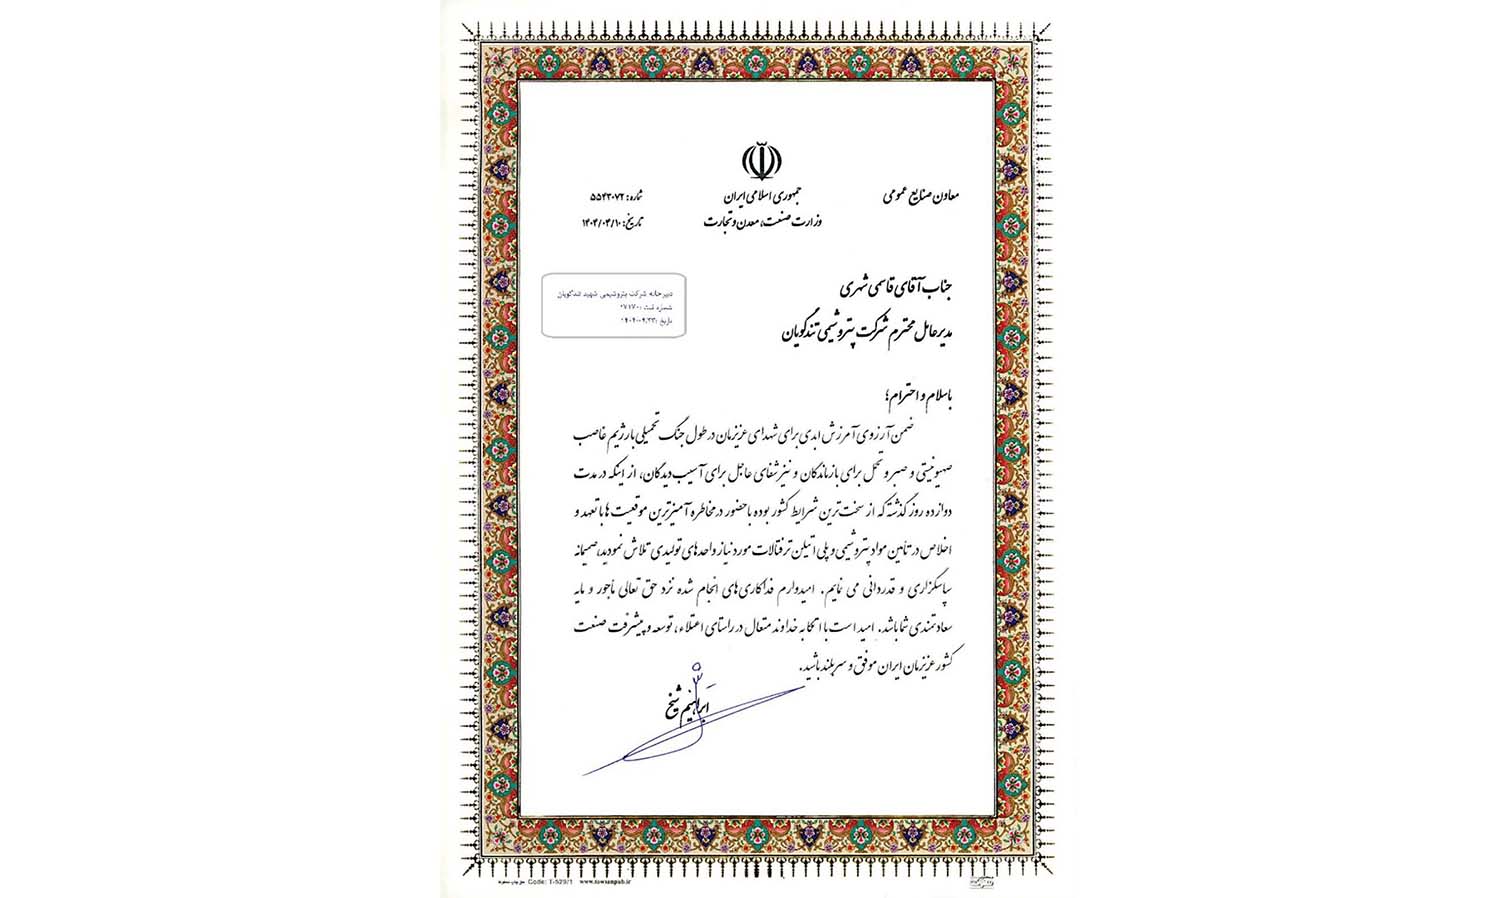 معاون صنایع عمومی
جمهوری اسلامی ایران
وزارت صنعت، معدن و تجارت
شماره: ۵۵۴۳۰۷۲
تاریخ: ۱۴۰۴/۰۴/۱۰
دبیرخانه شرکت پتروشیمی شهید تندگویان
شماره ثبت :
تاریخ :
جناب آقای قاسمی شهری
مدیرعامل محترم شرکت پتروشیمی تندگویان
باسلام و احترام؛
ضمن آرزوی آمرزش ابدی برای شهدای عزیزمان در طول جنگ تحمیلی با رژیم غاصب
صهیونیستی و صبر و تحمل برای بازماندگان و نیز شفای عاجل برای آسیب دیدگان، از اینکه در مدت
دوازده روز گذشته که از سخت‌ترین شرایط کشور بوده با حضور در مخاطره آمیزترین موقعیت ها با تعهد و
اخلاص در تأمین مواد پتروشیمی و پلی اتیلن ترفتالات مورد نیاز واحدهای تولیدی تلاش نمودید، صمیمانه
سپاسگزاری و قدردانی می نمایم. امیدوارم فداکاری‌های انجام شده نزد حق تعالی مأجور و مایه
سعادتمندی شما باشد. امید است با اتکا به خداوند متعال در راستای اعتلاء، توسعه و پیشرفت صنعت
کشور عزیزمان ایران موفق و سربلند باشید.
ابراهیم شیخ
Code: T-529/1 www.rowsanpub.ir